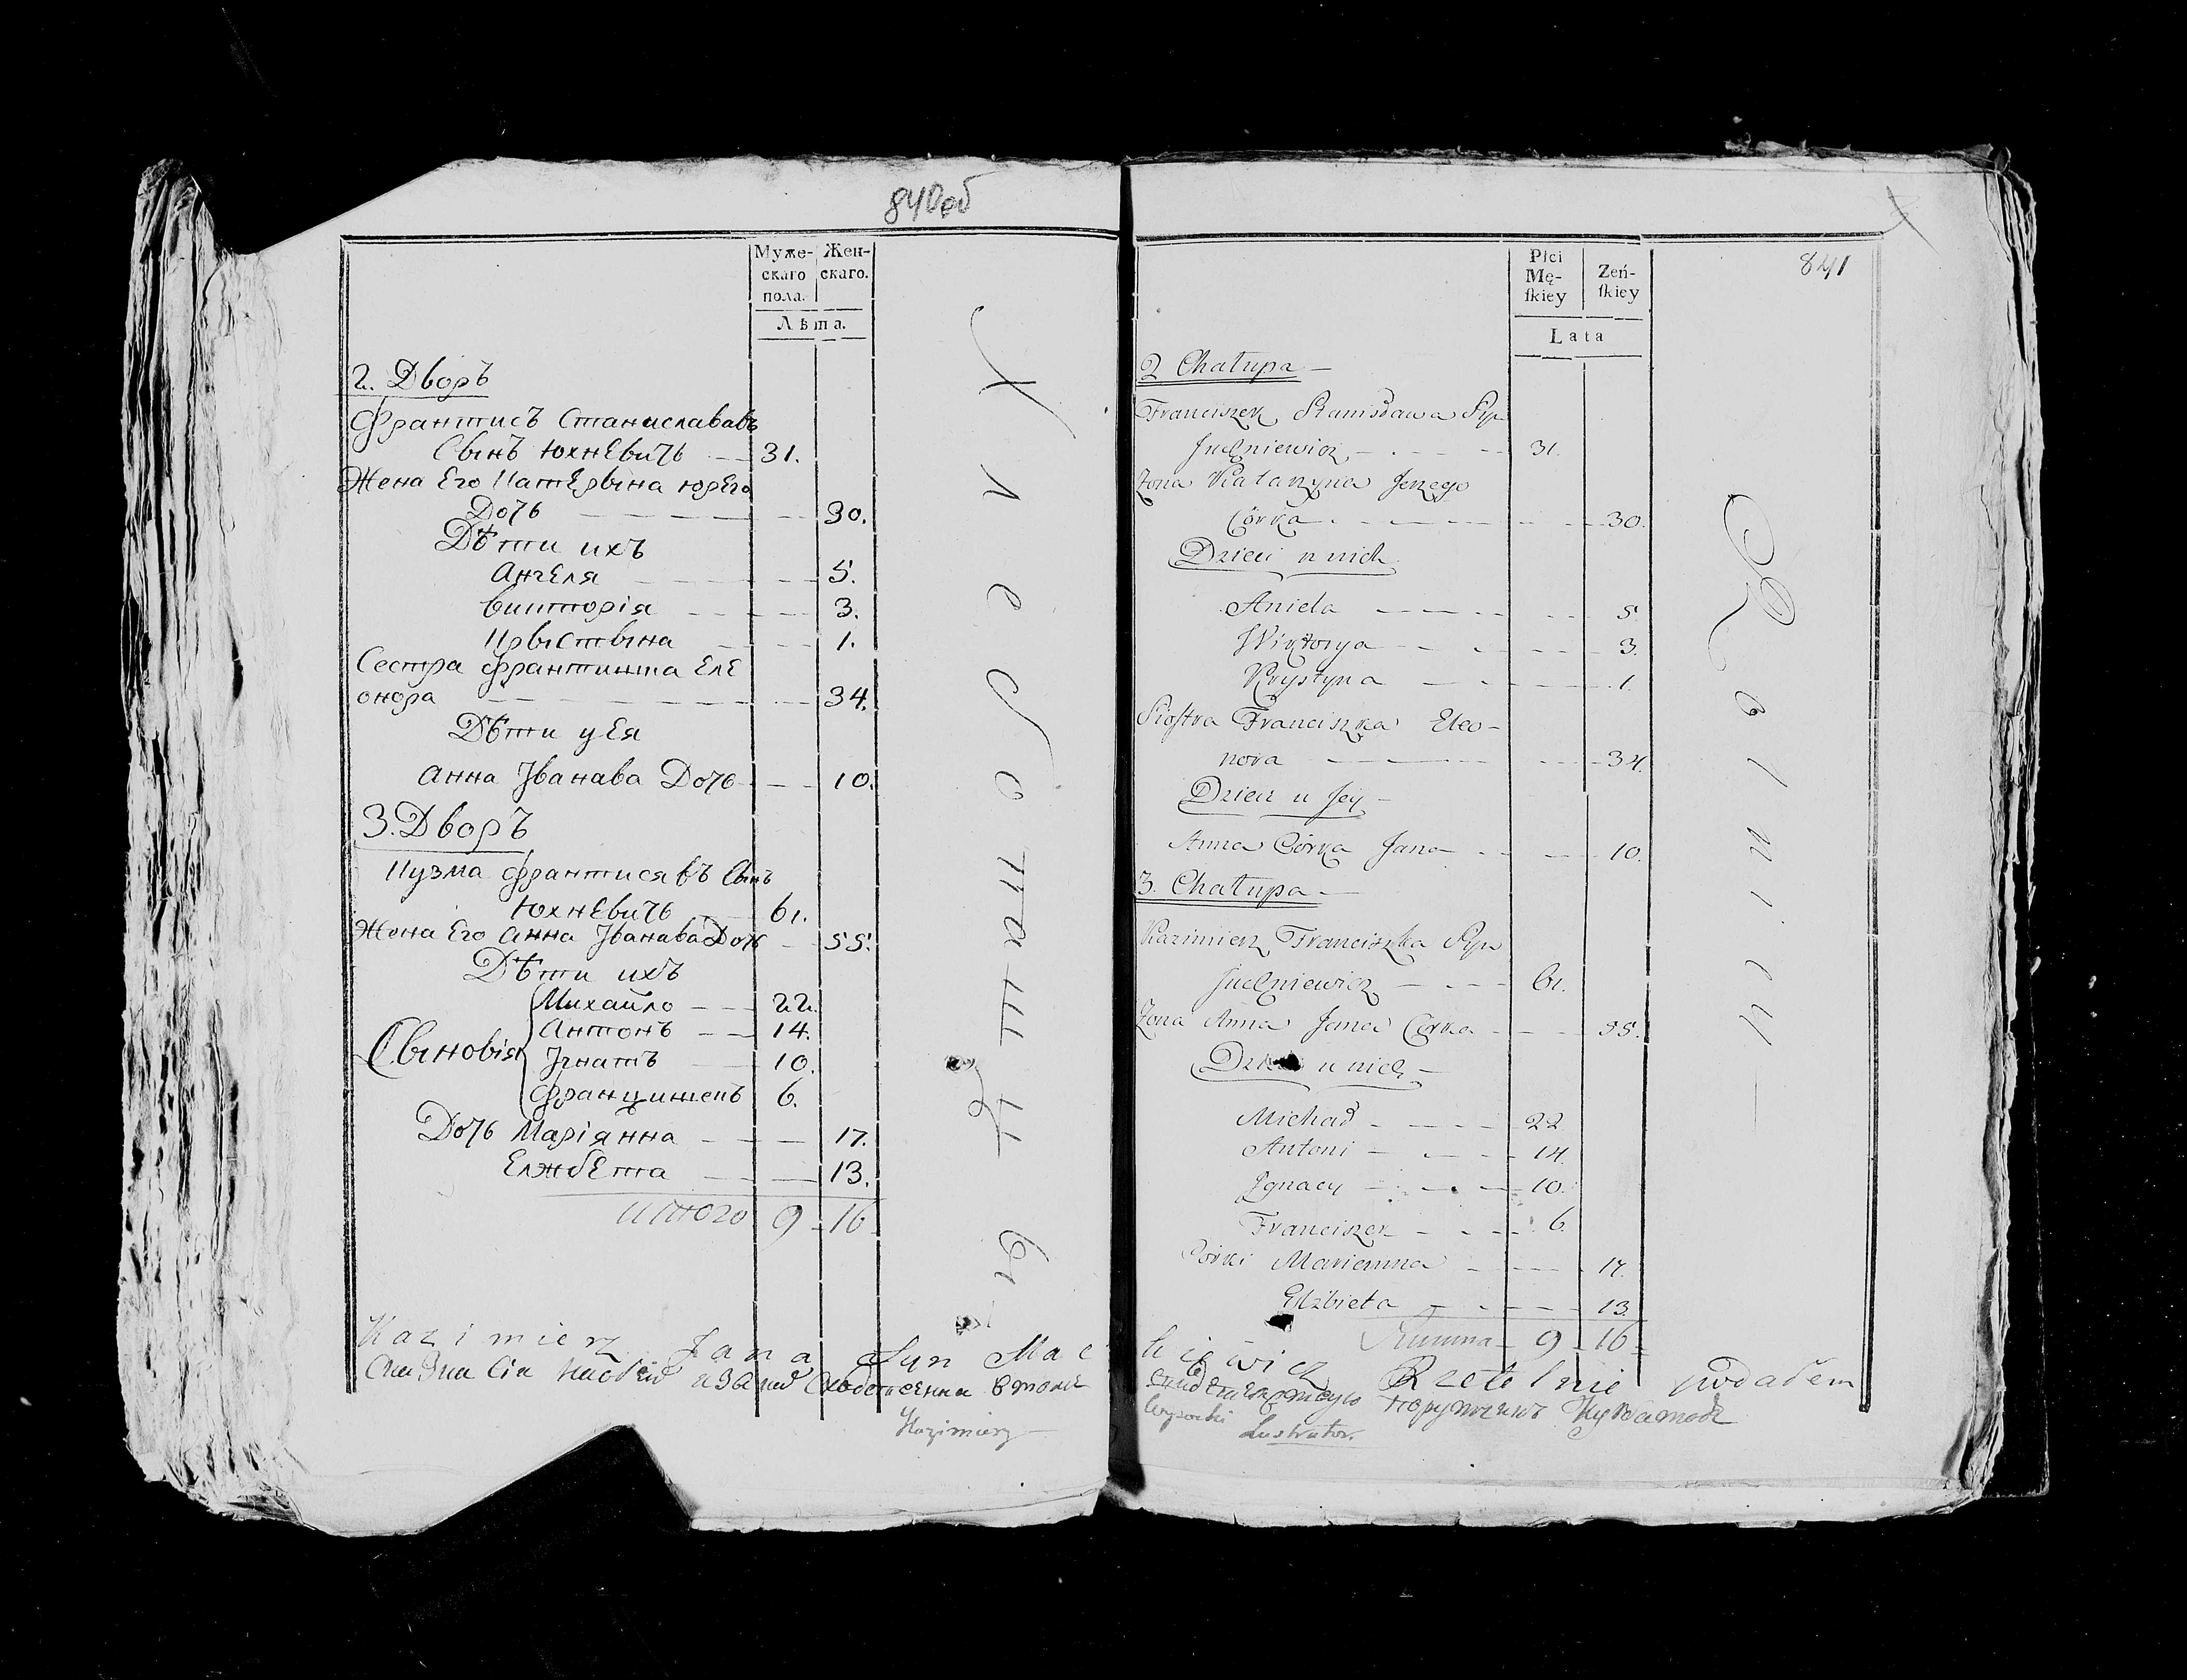 840об
Муже-
скаго
пола.
Жен-
скаго.
Лѣта.
2. Дворъ
Франтисъ Станислававъ
Сынъ Юхневичь 31.
Жена Его Катерына юрЕго
Дочь 30.
Дѣти ихъ
Ангеля 5.
Викторія 3.
Крыстына 1.
Сестра Франтишка Еле
онора 34.
Дѣти у Ея
Анна Іванава Дочь 10.
3. Дворъ
Кузма Франтисявъ Сынъ
Юхневичь 61.
Жена Его Анна Іванава Дочь 55.
Дѣти ихъ
Сыновія
Михайло 22.
Антонъ 14.
Ігнатъ 10.
Францишекъ 6.
Дочь Маріянна 17.
Елжбета 13.
Итого 9 16
Хлебопашцы
Kazimierz Jana Syn Mac
Kazimierz
841
Płci
Mę-
skiey
Zeń-
skiey
Lata
2 Chałupa
Franciszek Stanisława Syn
Juchniewicz 31.
Zona Katarzyna Jerzego
Córka 30.
Dzieci u nich
Aniela 5
Wiktorya 3.
Krystyna 1.
Siostra Franciszka Eleo-
nora 34.
Dzieci u Jey
Anna Córka Jana 10.
3. Chałupa
Kazimierz Franciszka Syn
Juchniewicz 61.
Zona Anna Jana Córka 55.
Dzieci u nich
Michał 22
Antoni 14.
Ignacy 10.
Franciszek 6.
Córki Marianna 17.
Elżbieta 13.
Summa 9 16
Rolnicy
kiewicz Rzetelnie podałem
Wysocki Lustrator.